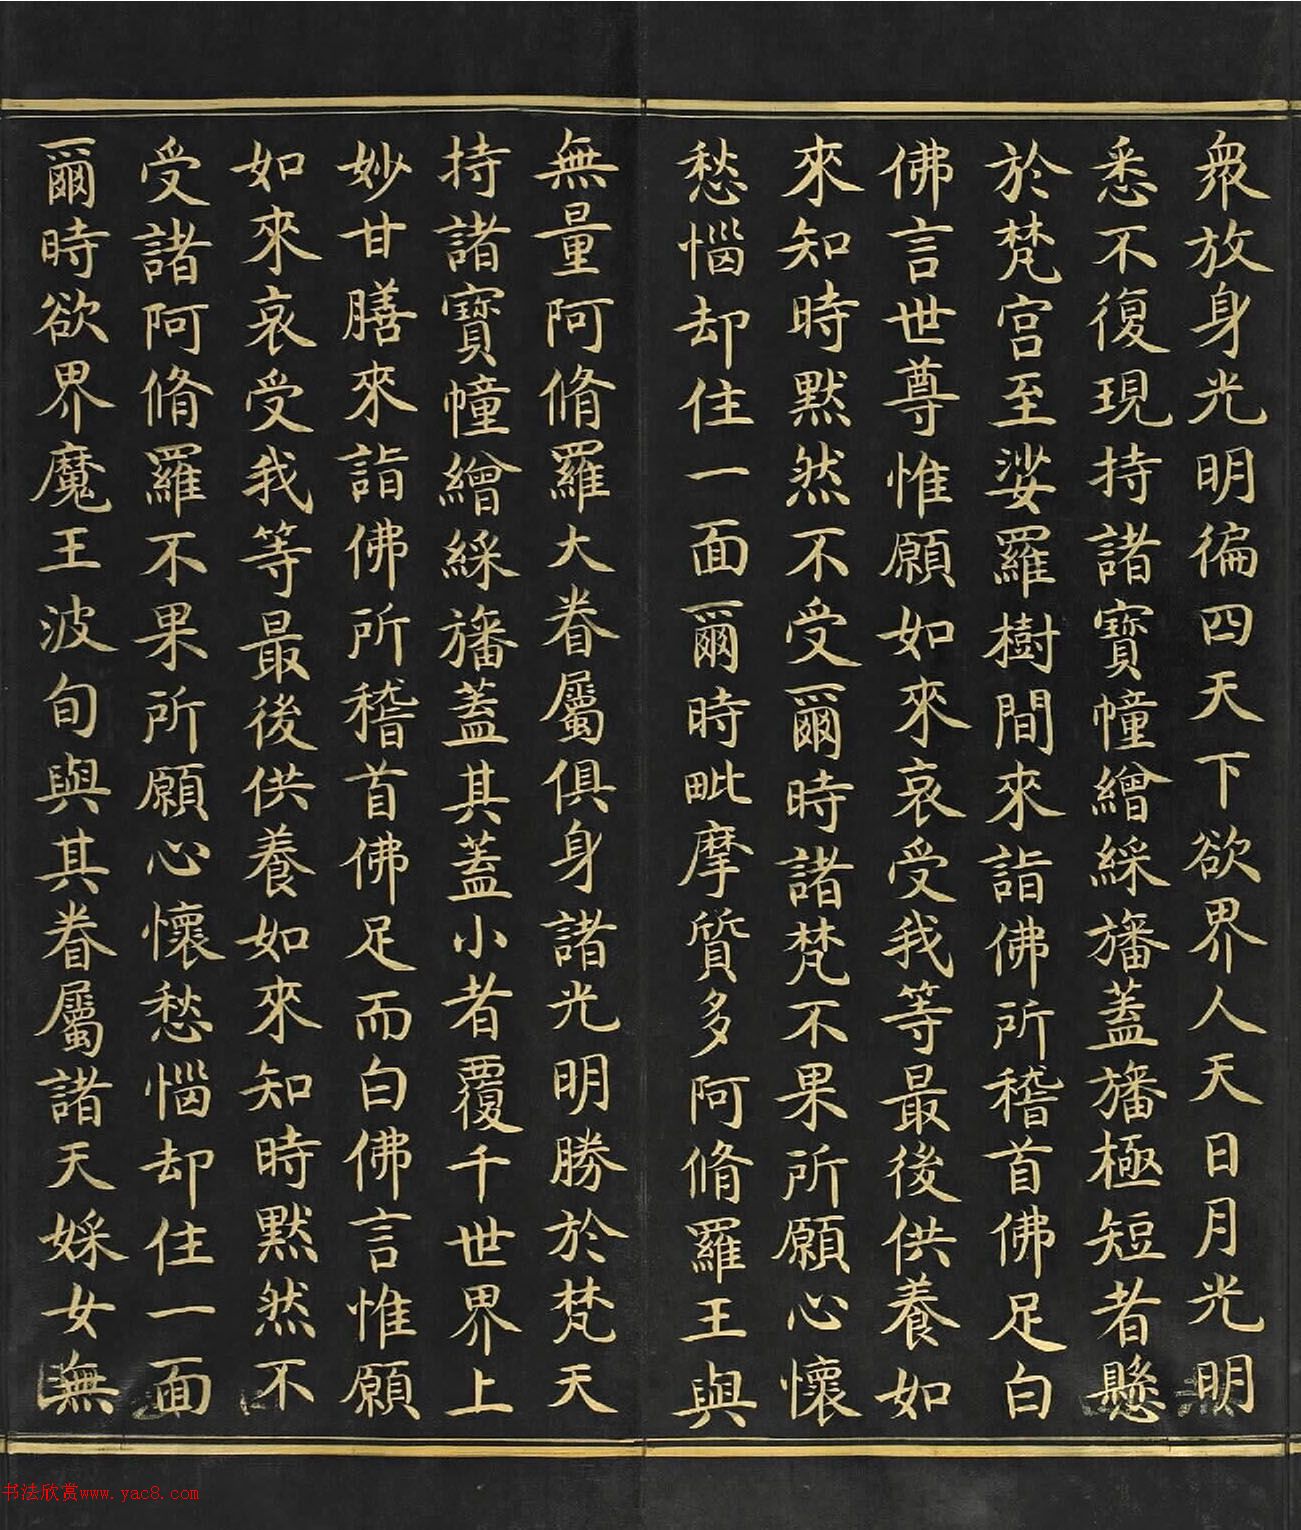 衆放身光明徧四天下欲界人天日月光明
悉不復現持諸寶幢繒綵旛蓋旛極短者懸
於梵宫至娑羅樹間來詣佛所稽首佛足白
佛言世尊惟願如來哀受我等最後供養如
來知時默然不受爾時諸梵不果所願心懷
愁惱却住一面爾時毗摩質多阿脩羅王與
無量阿脩羅大眷屬俱身諸光明勝於梵天
持諸寶幢繒綵旛蓋其蓋小者覆千世界上
妙甘膳來詣佛所稽首佛足而白佛言惟願
如來哀受我等最後供養如來知時默然不
受諸阿脩羅不果所願心懷愁惱却住一面
爾時欲界魔王波旬與其眷屬諸天婇女無
书法欣赏www.yac8.com